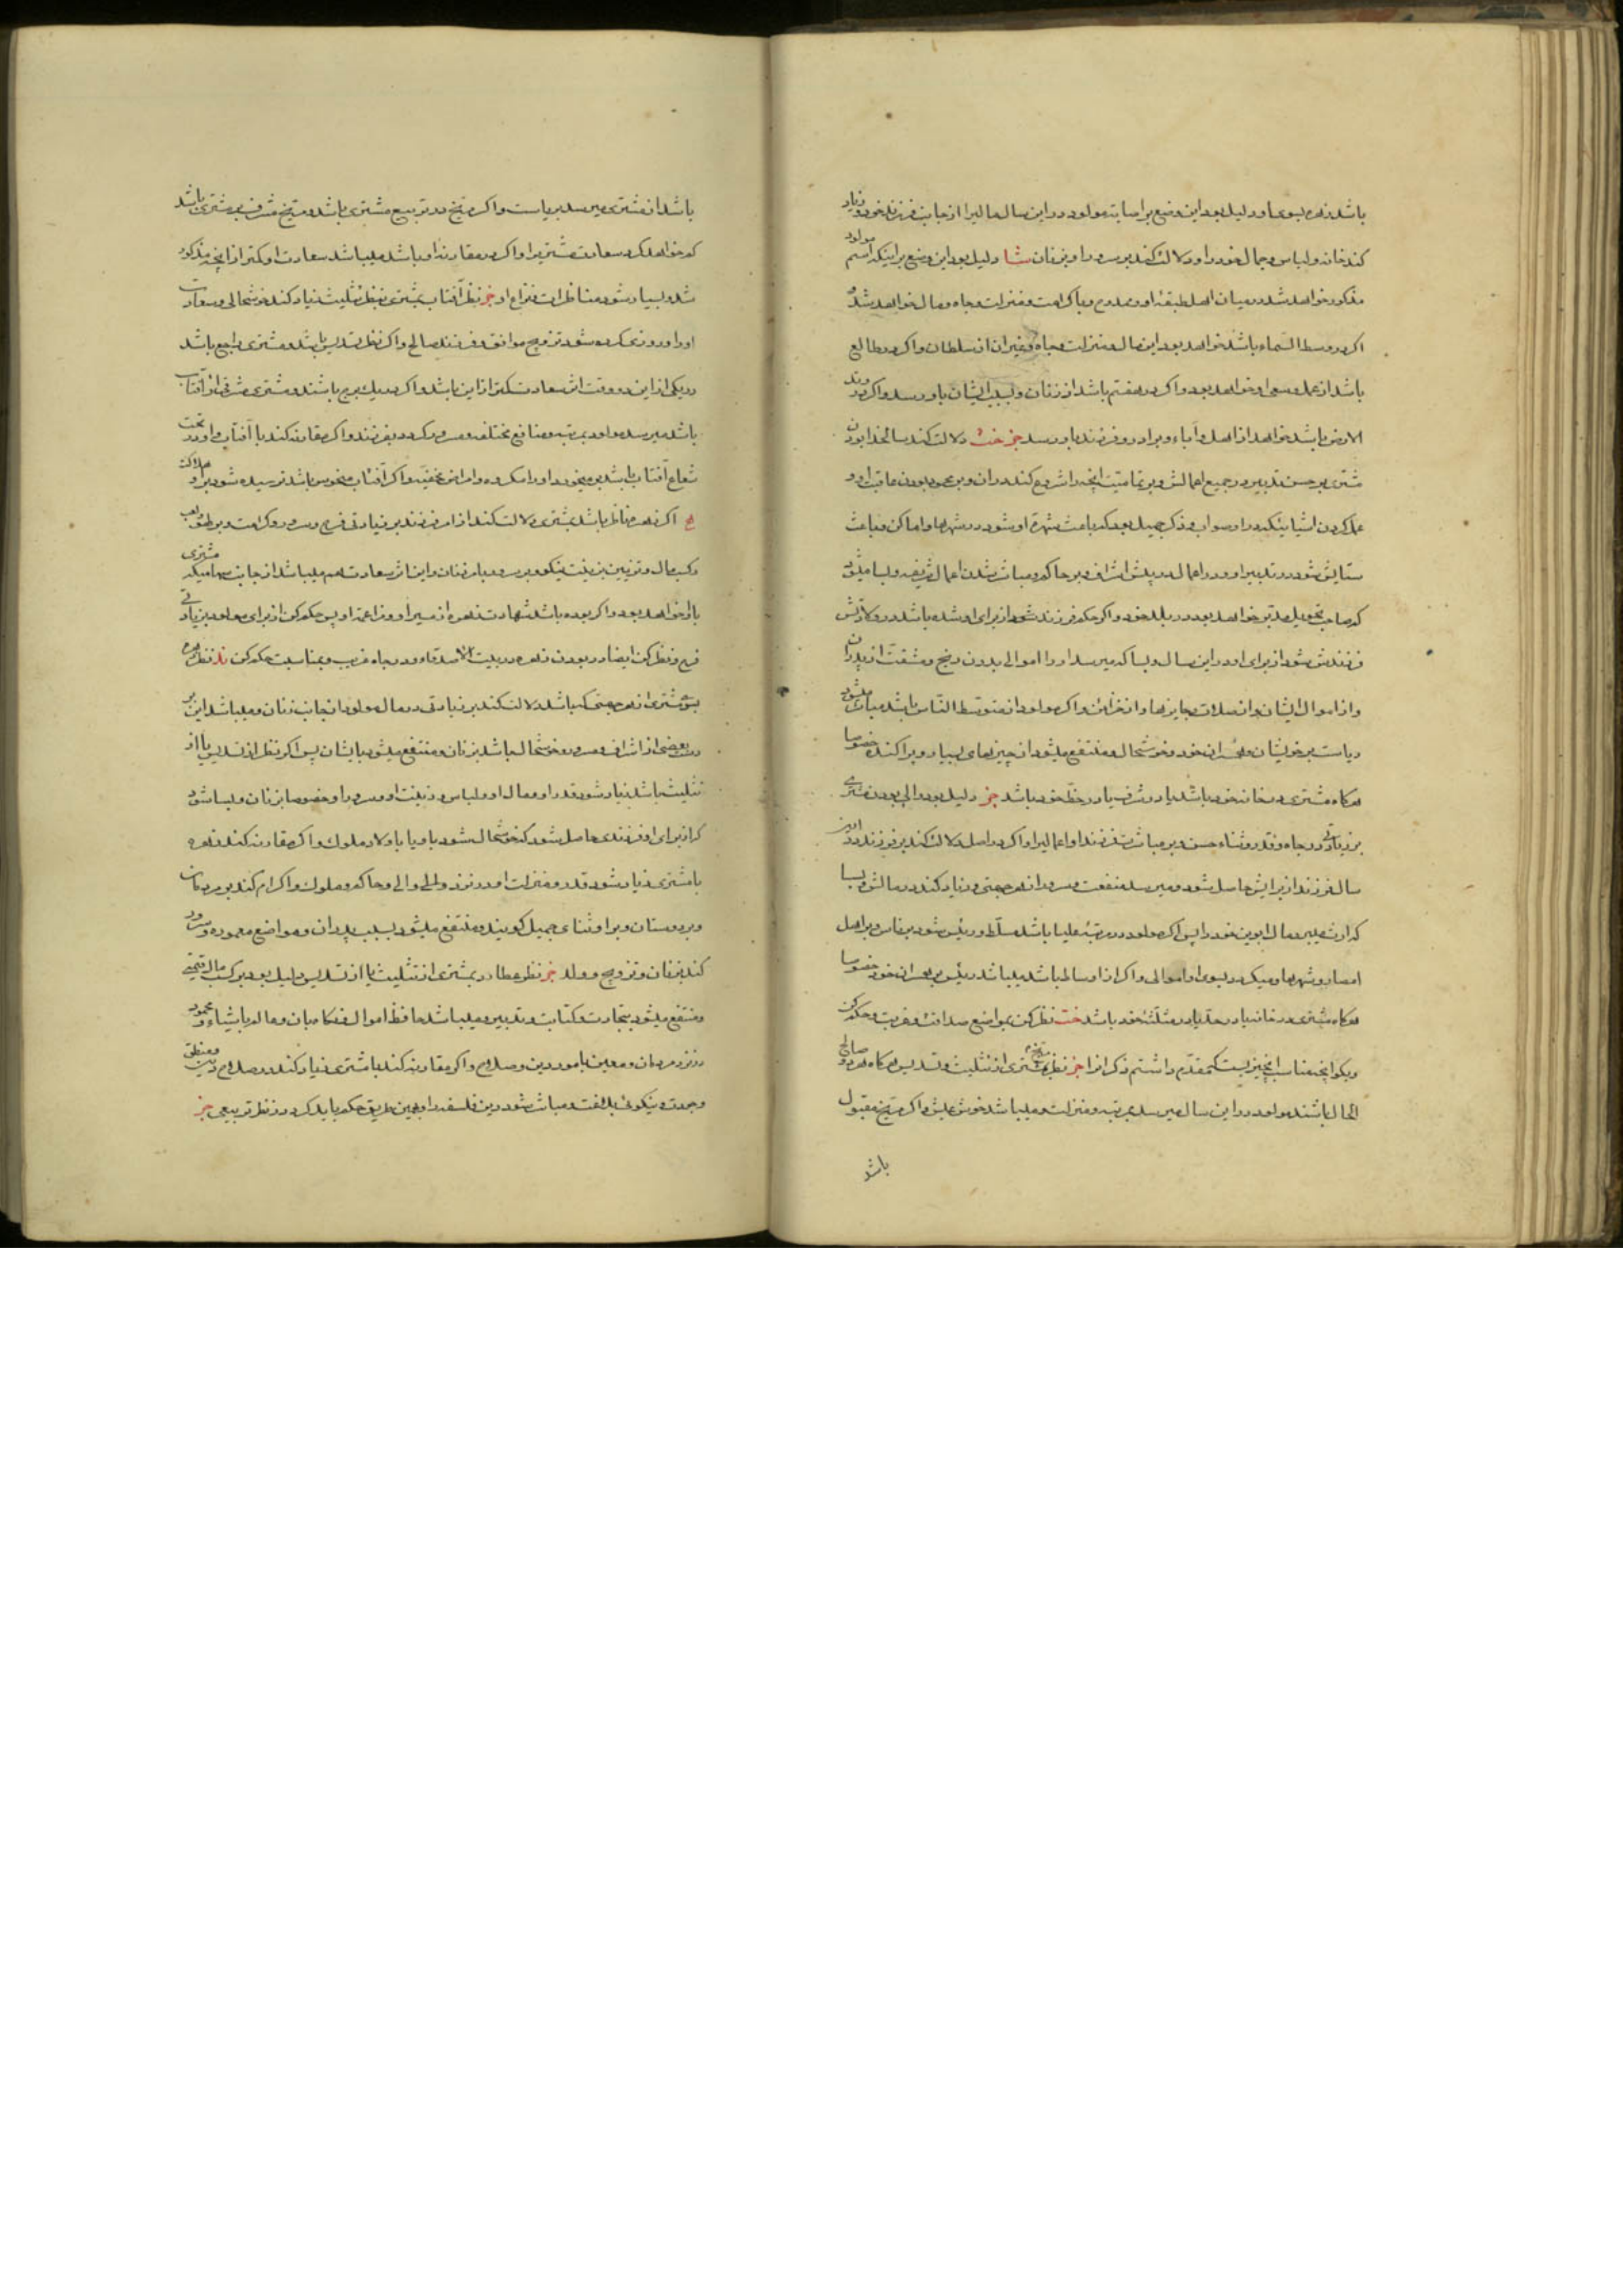 باشد زهره بسوی او دلیل بود این وضع بر اصابت مولود در این سال مالیرا از جانب فرزند خود و زیاد
کند خانه و لباس و جمال خود را و دلالت کند بر سرور او بزنان شا دلیل بود این وضع بر اینکه اسم مولود
مذکور خواهد شد در میان اهل طبقهٔ او و ممدوح و با کرامت و منزلت و جاه و مال خواهد شد و
اگر در وسط السماء باشد خواهد بود این مال و منزلت و جاه و غیر آن از سلطان و اگر در طالع
باشد از عمل و سعی او خواهد بود و اگر در هفتم باشد از زنان و بسبب ایشان باو رسد و اگر در وتد
الارض باشد خواهد از اهل و آباء و برادر و فرزند باو رسد جز خث دلالت کند سالخدا بودن
مشتری بر حسن تدبیر در جمیع اعمالش و بر تمامیت آنچه را شروع کند در آن و بر محمود بودن عاقبت او و
عمل کردن اشیاء نیک در او صواب و ذکر جمیل بود که باعث شهرة او شود در شهرها و اماکن و باعث
ستایش شود در تدبیر او و در اعمال در پیش اشراف و بر حاکم و مباشرت شدن اعمال شریفه و بسا میشود
که صاحب تحویل مدبر خواهد بود در بلد خود و اگر حکم فرزند شود از برای او شده باشد در ولادتش
فرزندش شود از برای او در این سال و بسا که میرسد او را اموالی بدون رنج و مشقت از پدران
و از اموال ایشان و از صلات و جایزها و از خزائن و اگر مولود از متوسط الناس باشد مباشر میشود
ریاست بر خویشان و همسران خود و خوشحال و منتفع میشود از چیزهای بسیار و پراکنده خصوصا
هرگاه مشتری در خانه خود باشد یا در شرف یا در حظ خود باشد جز دلیل بود والی بودن مشتری
بر زیادتی در جاه و قدر و ثناء حسن و بر مباشرت فرزند او اعمالیرا و اگر در اصل دلالت کند بر فرزند در این
سال فرزند از برایش حاصل شود و میرسد منفعت و سرور از هر جهتی و زیاد کند در مالش و بسا
که ارث میبرد مال ابوین خود را پس اگر مولود در مرتبهٔ علیا باشد مسلط و رئیس شود بر ناس و بر اهل
امصار و شهرها و میکردد بسوی او اموالی و اگر از اوساط باشد میباشد رئیس بر همسران خود خصوصا
هرگاه مشتری در خانه یا در حد یا در مثلثه خود باشد خث نظر کن بمواضع صداقت و غربت و حکم کن
و بگو آنچه مناسب آنچیزیست که مقدم داشتم ذکر آنرا جز نظر مریخ بمشتری از تثلیث و تسدیس هرگاه هر دو صالح
الحال باشند مولود در این سال میرسد بمرتبه و منزلت و میباشد خوش عیش و اگر مریخ مقبول
باشد
باشد از مشتری میرسد بریاست و اگر مریخ در تربیع مشتری باشد و مریخ مشرف بر مشتری باشد
که خواهد کرد سعادت مشتریرا و اگر در مقارنه او باشد میباشد سعادت او کمتر از آنچه مذکور
شد و بسیار شود مناظرات و نزاع او جز نظر آفتاب بمشتری بنظر تثلیث زیاد کند خوشحالی و سعادت
او را و روزی کرده شود تزویج موافق و فرزند صالح و اگر نظر تسدیس باشد و مشتری راجع باشد
در یکی از این دو وقت اثر سعادت کمتر از این باشد و اگر در یک برج باشند و مشتری مشرقی از آفتاب
باشد میرسد مولود بمرتبه و منافع مختلفه و مسرور کردد بفرزند و اگر مقارنه کند با آفتاب و او در تحت
شعاع آفتاب باشد بر میخورد او را مکروه و امراض مخفیه و اگر آفتاب منحوس باشد ترسیده شود بر او هلاکت
ج اگر زهره ناظر باشد بمشتری دلالت کند از امر فرزند بر زیادتی فرح و سرور و کرامت و بر لهو و لعب
و کسب مال و تزیین بزینت نیکو و بر سرور بامر زنان و این اثر سعادت هم میباشد از جانب سهامیکه مشتری
با او خواهد بود و اگر بوده باشد شهادت زهره از میراو و مزاعمهٔ او پس حکم کن از برای مولود بزیادتی
فرح و نظر کن ایضا در بودن زهره در بیت الاصدقاء و در جاه غریب و بمناسبت حکم کن نذ نظر زهره
بسوی مشتری از هر جهتی که باشد دلالت کند بر زیادتی در مال مولود از جانب زنان و میباشد این بر
دست بعضی از اشراف و مسرور و خوشحال باشد بزنان و منتفع میشود بایشان پس اگر نظر از تسدیس یا از
تثلیث باشد زیاد شود قدر او و مال او و لباس و زینت او و سرور او خصوصا بزنان و بسا شود
که از برای او فرزندی حاصل شود که خوشحال شود باو یا باولاد ملوک و اگر مقارنه کند زهره
با مشتری زیاد شود قدر و منزلت او در نزد والی والی و حاکم و ملوک و اکرام کند بر مردمان
و بر دوستان و بر او ثنای جمیل گویند و منتفع میشود بسبب پدران و مواضع معموره و سرور
کند بزنان و تزویج و ولد جز نظر عطارد بمشتری از تثلیث یا از تسدیس دلیل بود بر کسب مال و نتیجه
و منتفع میشود بتجارت و کتابت و تدبیر و میباشد حافظ اموال و حکام بان و عالم باشیاء و محمود
در نزد مردمان و معین بامور دین و صلاح و اگر مقارنه کند با مشتری زیاد کند در صلاح دین و منطق
و جودت و نیکوئی بلاغت و مباشر شود درین فلسفه را و بهمین طریق حکم باید کرد در نظر تربیعی جز